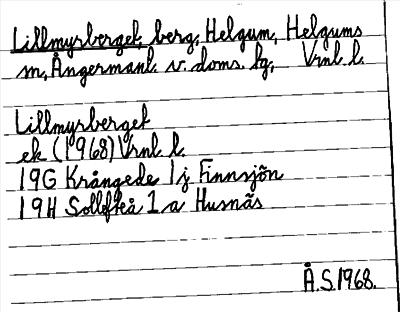 Lillmyrberget, berg, Helgum, Helgums
sn, Ångermanl. v. doms. fg, Vrnl. l.
Lillmyrberget
ek (1968) Vrnl. l.
19G Krångede 1 j Finnsjön
19H Sollefteå 1 a Husnäs
Å.S. 1968.